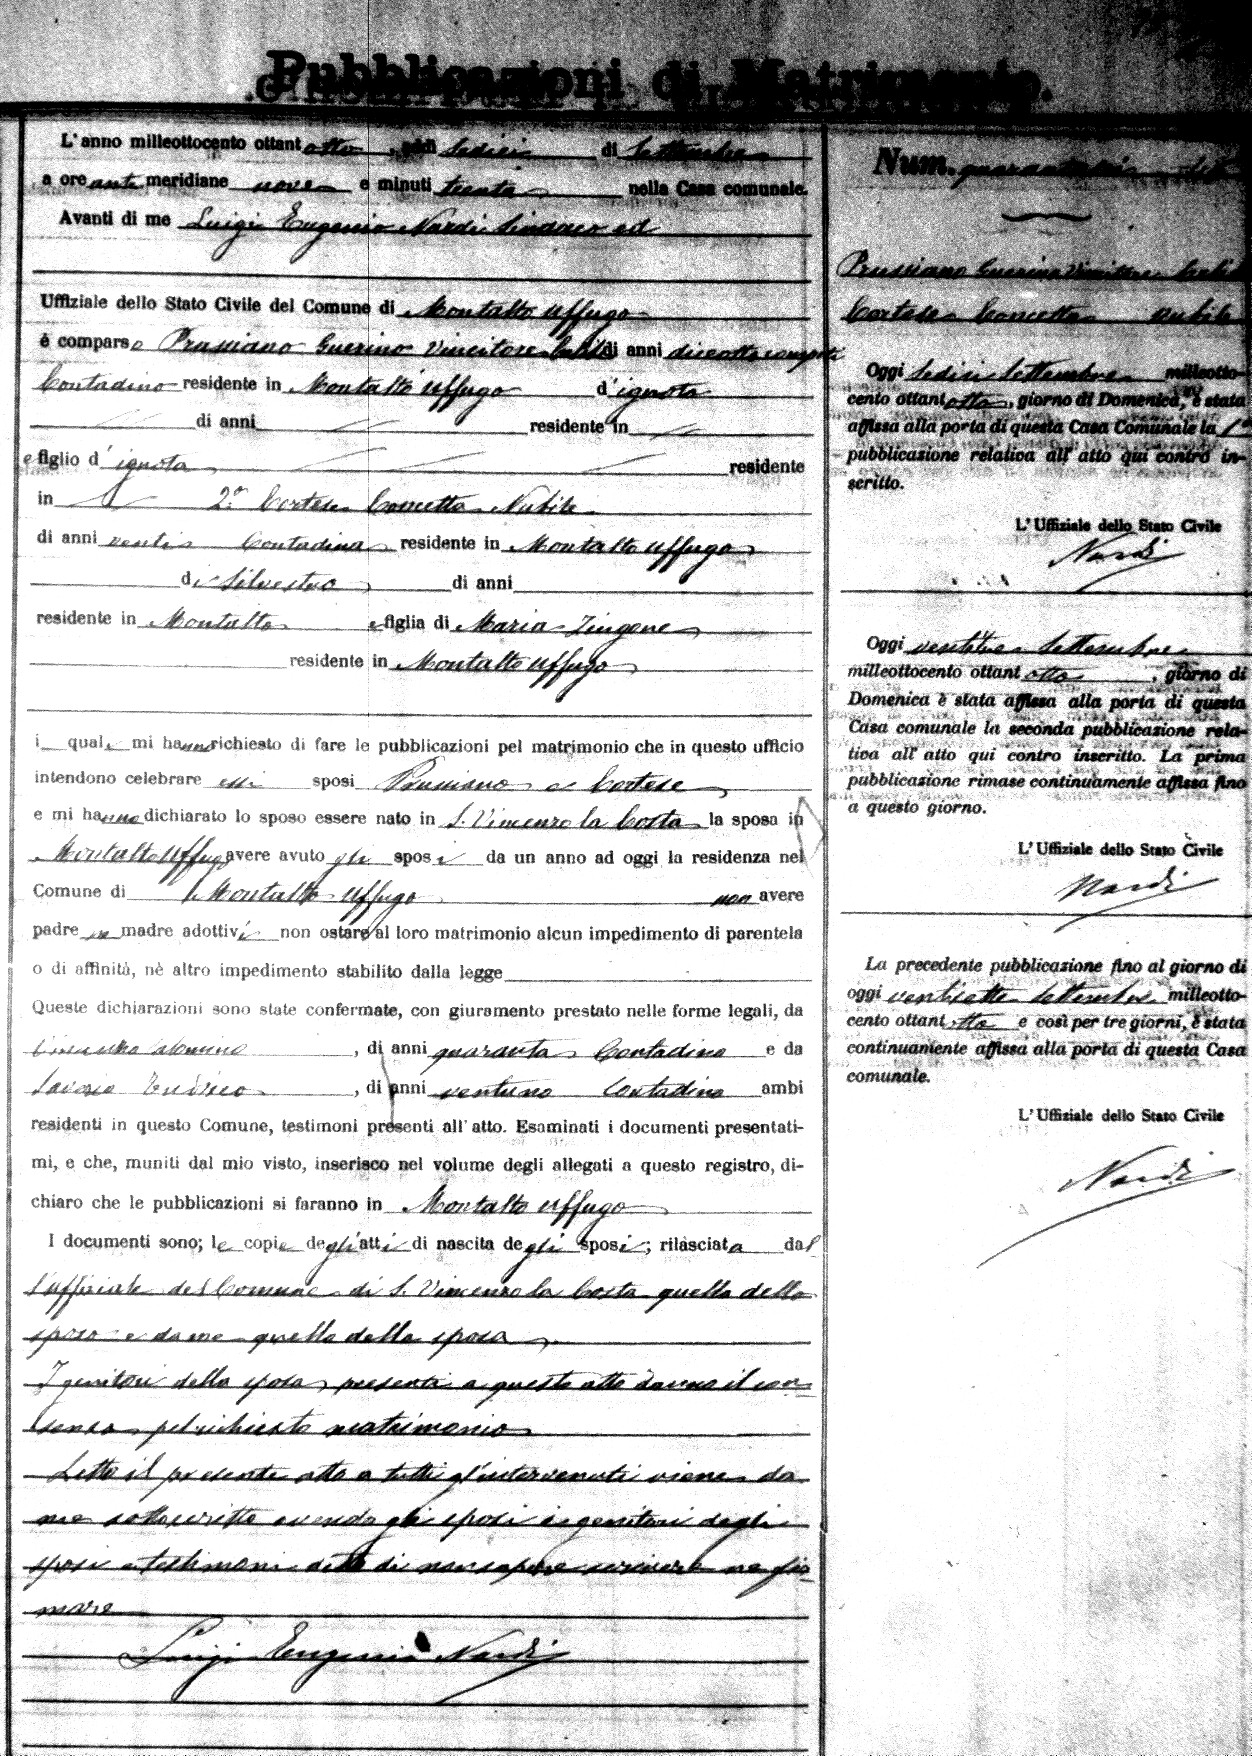 Pubblicazioni di Matrimonio.
L'anno milleottocento ottantotto, addì sedici di Settembre
a ore antemeridiane nove e minuti trenta nella Casa comunale.
Avanti di me Luigi Eugenio Nardi Sindaco ed
Uffiziale dello Stato Civile del Comune di Montalto Uffugo
è comparso Prussiano Guerino Vincitore Celibe di anni diciotto compiti
Contadino residente in Montalto Uffugo d'ignoto
di anni residente in
e figlio d'ignota residente
in 2° Cortese Concetta Nubile
di anni venti Contadina residente in Montalto Uffugo
di Silvestro di anni
residente in Montalto e figlia di Maria Zingone
residente in Montalto Uffugo
i quali mi hanno richiesto di fare le pubblicazioni pel matrimonio che in questo ufficio
intendono celebrare essi sposi Prussiano e Cortese
e mi hanno dichiarato lo sposo essere nato in S. Vincenzo la Costa la sposa in
Montalto Uffugo avere avuto gli sposi da un anno ad oggi la residenza nel
Comune di Montalto Uffugo non avere
padre ne madre adottivi non ostare al loro matrimonio alcun impedimento di parentela
o di affinità, nè altro impedimento stabilito dalla legge
Queste dichiarazioni sono state confermate, con giuramento prestato nelle forme legali, da
, di anni quaranta Contadino e da
, di anni ventuno Contadino ambi
residenti in questo Comune, testimoni presenti all'atto. Esaminati i documenti presentati-
mi, e che, muniti dal mio visto, inserisco nel volume degli allegati a questo registro, di-
chiaro che le pubblicazioni si faranno in Montalto Uffugo
I documenti sono; le copie degli atti di nascita degli sposi; rilasciata dal
l'uffiziale del Comune di S. Vincenzo la Costa quella dello
sposo e da me quella della sposa
I genitori della sposa presenti a questo atto danno il con=
senso pel richiesto matrimonio
Letto il presente atto a tutti gl'intervenuti viene da
me sottoscritto avendo gli sposi i genitori degli
sposi e testimoni detto di non sapere scrivere ne fir=
mare
Luigi Eugenio Nardi
Num. quarantasei
Prussiano Guerino Vincitore Celibe
Cortese Concetta Nubile
Oggi sedici Settembre milleotto-
cento ottantotto, giorno di Domenica, è stata
affissa alla porta di questa Casa Comunale la 1ª
pubblicazione relativa all'atto qui contro in-
scritto.
L'Uffiziale dello Stato Civile
Nardi
Oggi ventitre Settembre
milleottocento ottantotto, giorno di
Domenica è stata affissa alla porta di questa
Casa comunale la seconda pubblicazione rela-
tiva all'atto qui contro inscritto. La prima
pubblicazione rimase continuamente affissa fino
a questo giorno.
L'Uffiziale dello Stato Civile
Nardi
La precedente pubblicazione fino al giorno di
oggi ventisette Settembre milleotto-
cento ottantotto e così per tre giorni, è stata
continuamente affissa alla porta di questa Casa
comunale.
L'Uffiziale dello Stato Civile
Nardi